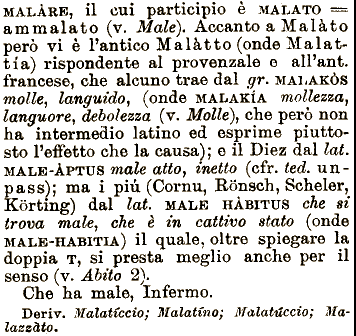 MALÀRE, il cui participio è MALATO =
ammalato (v. Male). Accanto a Malàto
però vi è l'antico Malàtto (onde Malat-
tía) rispondente al provenzale e all'ant.
francese, che alcuno trae dal gr. MALAKÒS
molle, languido, (onde MALAKÍA mollezza,
languore, debolezza (v. Molle), che però non
ha intermedio latino ed esprime piutto-
sto l'effetto che la causa); e il Diez dal lat.
MALE-ÀPTUS male atto, inetto (cfr. ted. un-
pass); ma i piú (Cornu, Rönsch, Scheler,
Körting) dal lat. MALE HÀBITUS che si
trova male, che è in cattivo stato (onde
MALE-HABITIA) il quale, oltre spiegare la
doppia T, si presta meglio anche per il
senso (v. Abito 2).
Che ha male, Infermo.
Deriv. Malatíccio; Malatíno; Malatúccio; Ma-
lazzàto.